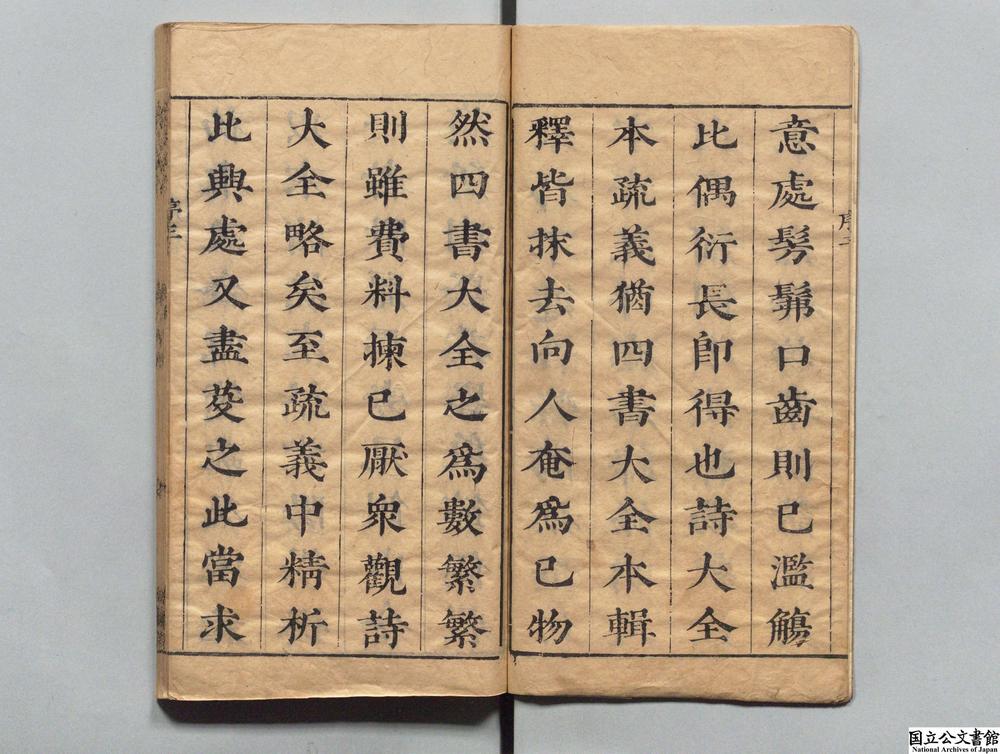 意處髣髴口齒則已濫觴
比偶衍長即得也詩大全
本疏義猶四書大全本輯
釋皆抹去向人奄爲已物
然四書大全之爲數繁繁
則雖費料揀已厭衆觀詩
大全略矣至疏義中精析
比興處又盡芟之此當求
序三
国立公文書館
National Archives of Japan